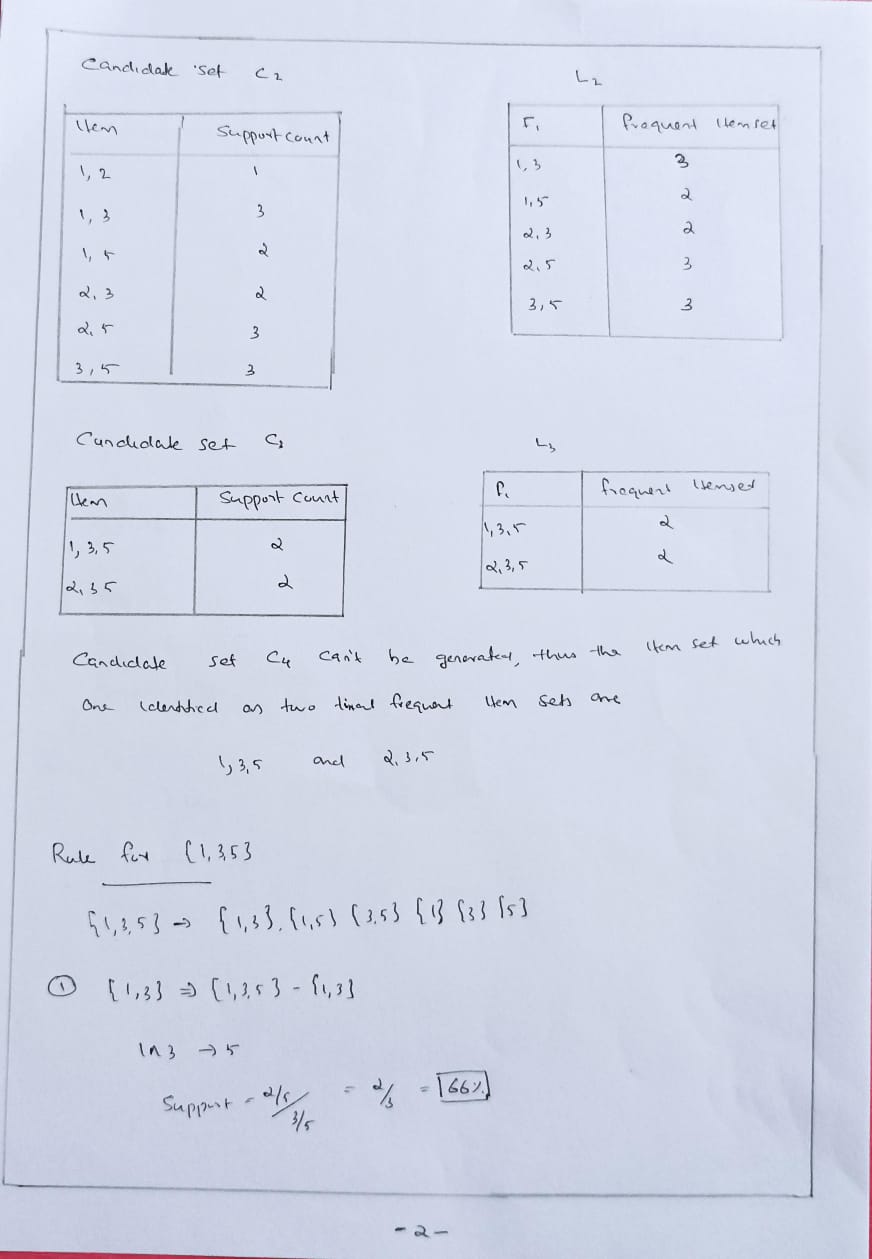 Candidate set C2
Item Support count
1, 2 1
1, 3 3
1, 5 2
2, 3 2
2, 5 3
3, 5 3
L2
F1 frequent Itemset
1, 3 3
1, 5 2
2, 3 2
2, 5 3
3, 5 3
Candidate set C3
Item Support Count
1, 3, 5 2
2, 3 5 2
L3
F1 frequent Itemset
1, 3, 5 2
2, 3, 5 2
Candidate set C4 can't be generated, thus the Item set which
are identified as two final frequent Item sets are
1, 3, 5 and 2, 3, 5
Rule for {1, 3, 5}
{1, 3, 5} → {1, 3}, {1, 5} {3, 5} {1} {3} {5}
① {1, 3} ⇒ {1, 3, 5} - {1, 3}
1 ∩ 3 → 5
Support = 2/5 / 3/5 = 2/3 = 66%
- 2 -